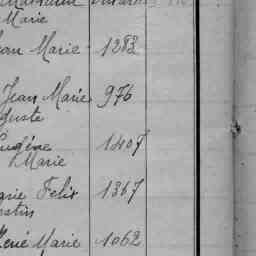 Marie
Jean Marie 1283
Jean Marie 976
Auguste
Eugène 1407
Marie
Marie Felix 1367
René Marie 1062